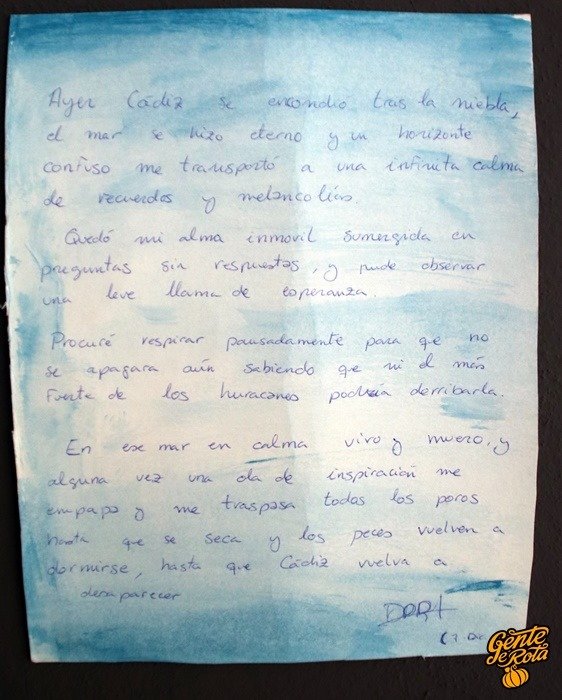 Ayer Cádiz se encondio tras la niebla,
el mar se hizo eterno y un horizonte
confuso me transportó a una infinita calma
de recuerdos y melancolías.
Quedó mi alma inmovil sumergida en
preguntas sin respuestas, y pude observar
una leve llama de esperanza.
Procuré respirar pausadamente para que no
se apagara aún sabiendo que ni el más
fuerte de los huracanes podría derribarla.
En ese mar en calma vivo y muero, y
alguna vez una ola de inspiración me
empapa y me traspasa todos los poros
hasta que se seca y los peces vuelven a
dormirse, hasta que Cádiz vuelva a
desaparecer
Gente
de Rota